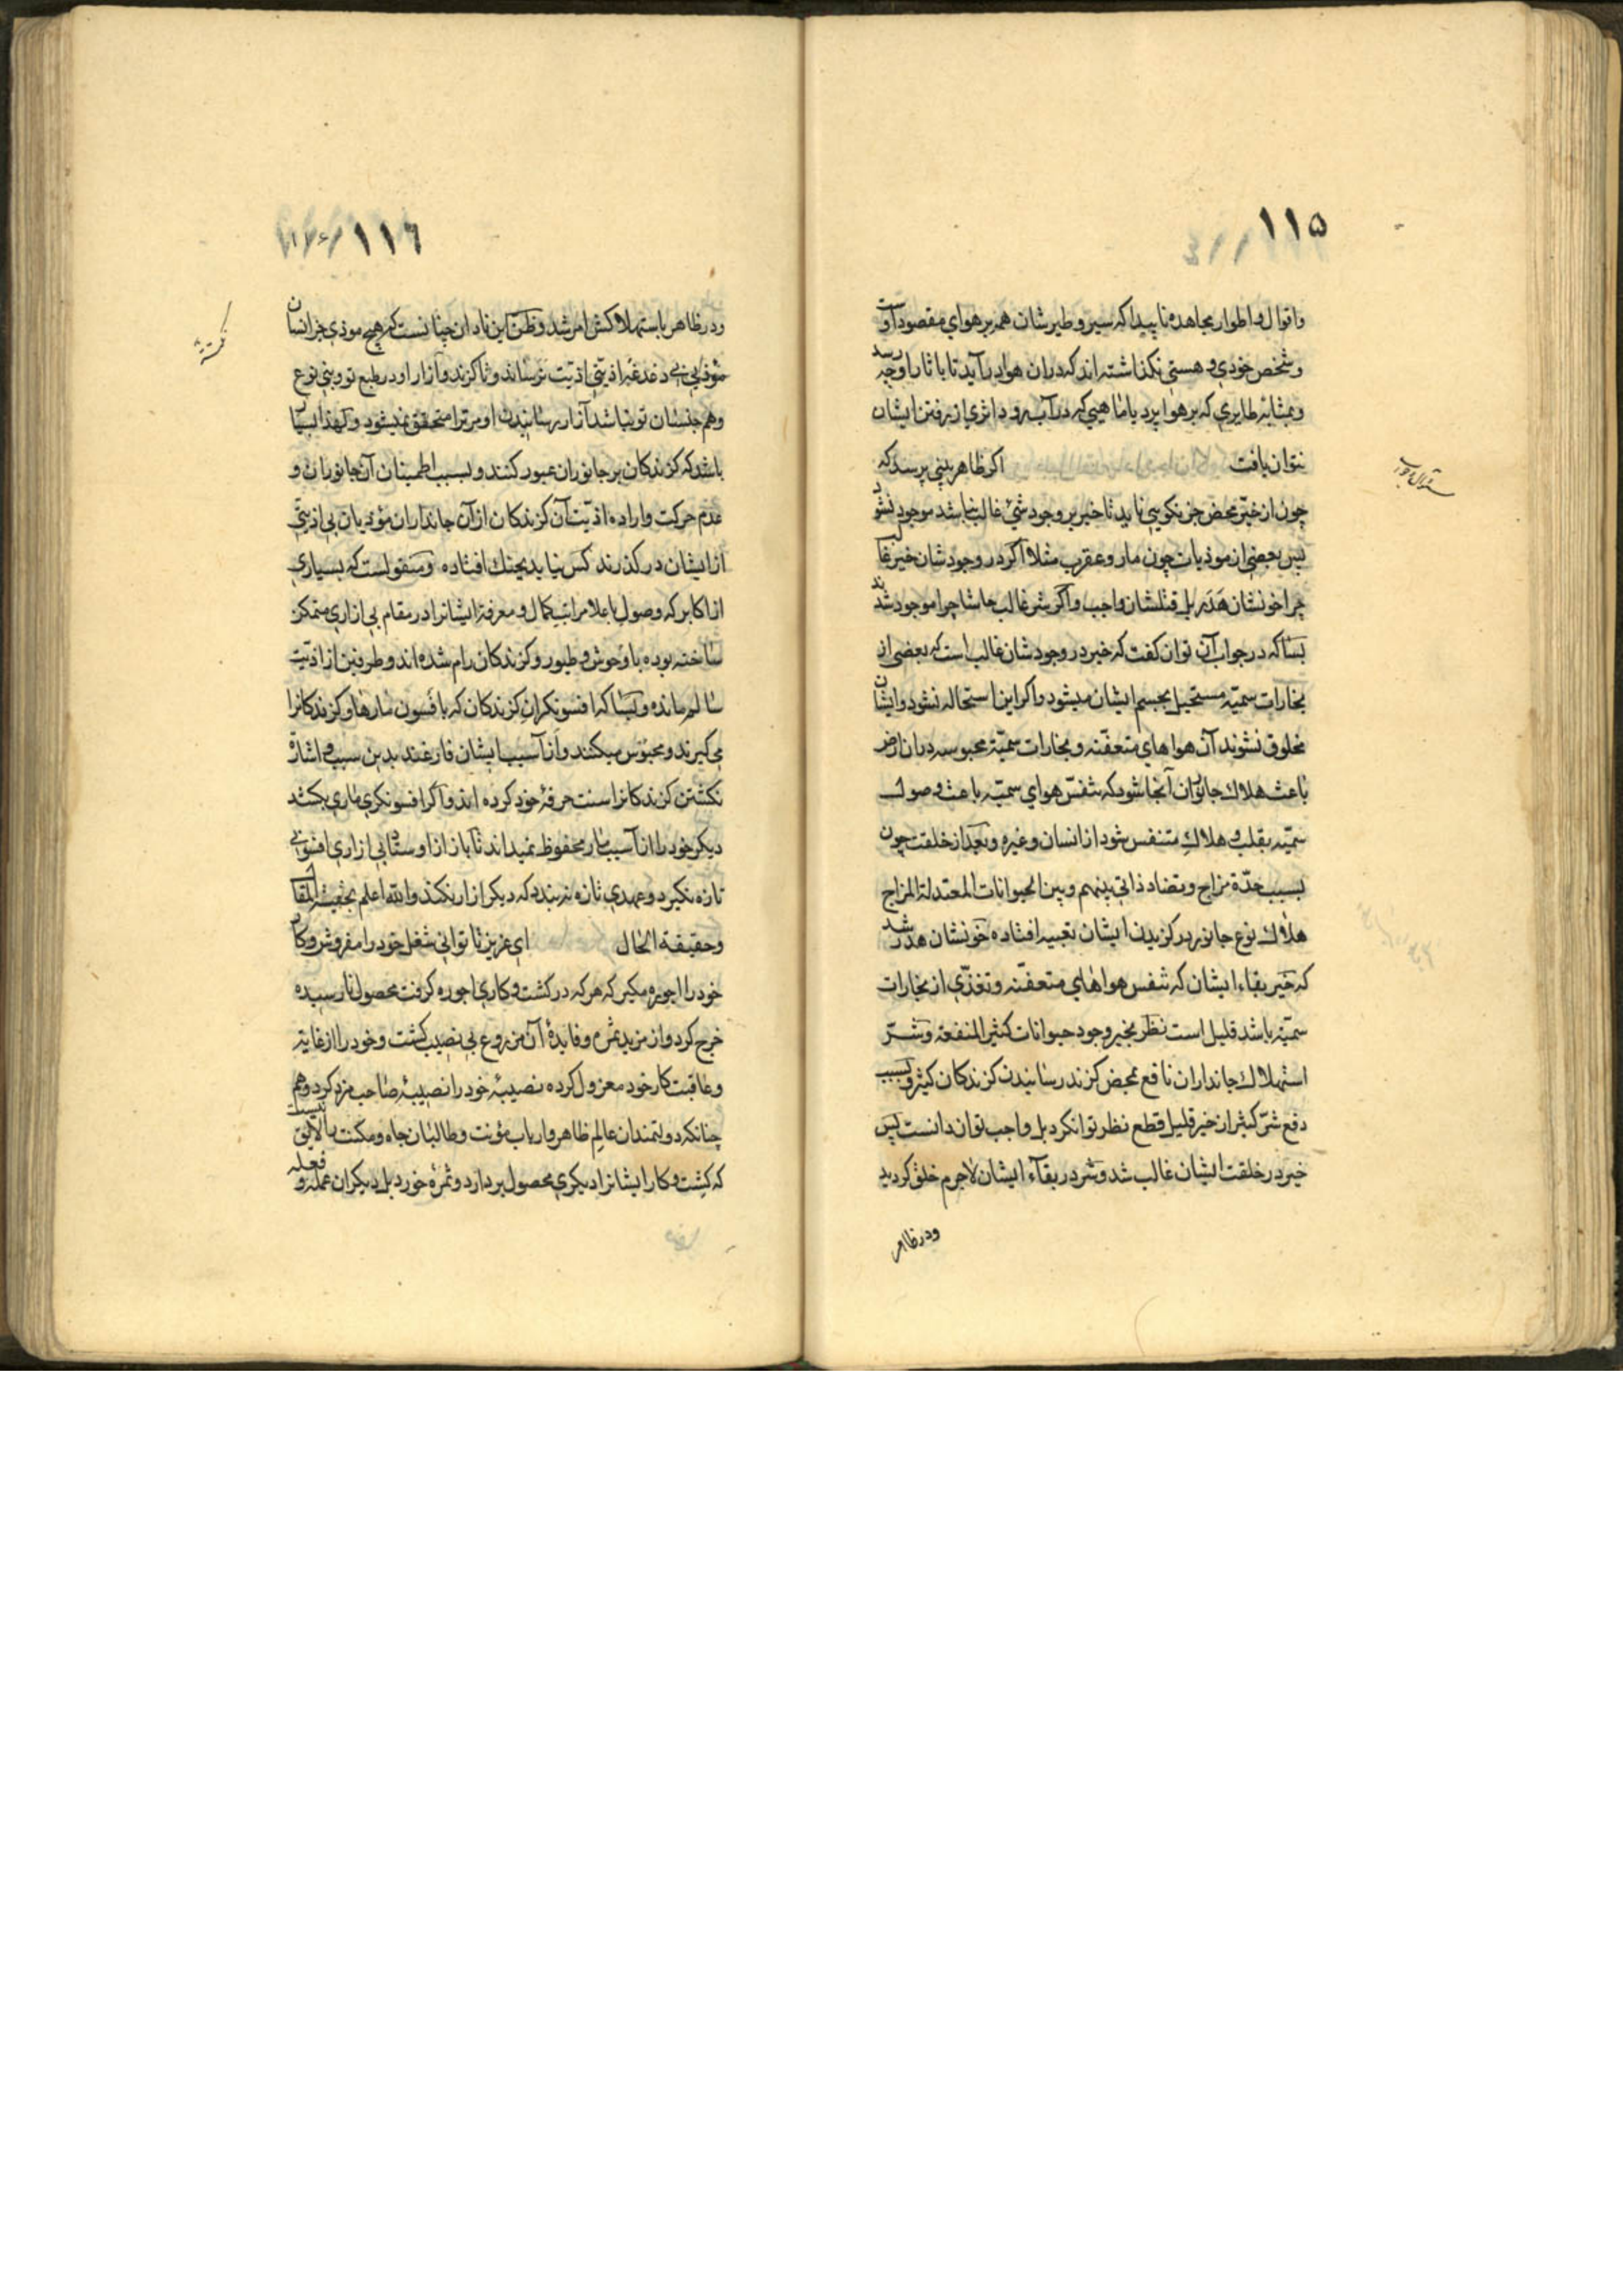 ۱۱۵
و اقوال و اطوار مجاهده ناپیدا که سیر و طیرشان همه بر هوای مقصود اوست
و شخص خودی و هستی نکذاشته اند که در ان هوا در آید تا باثار او چه رسد
و بمثابه طایری که بر هوا پرد یا ماهیی که در آب رود اثری از رفتن ایشان
نتوان یافت اکر ظاهر بینی پرسد که
سؤال و جواب
چون از خیر محض جز نکویی ناید تا خیر بر وجود شیٔ غالب نباشد موجود نشود
پس بعضی از موذیات چون مار و عقرب مثلا اکر در وجودشان خیر غالب
چرا خونشان هدر بل قتلشان واجب و اکر شر غالب حاشا چرا موجود شدند
بسا که در جواب آن توان کفت که خیر در وجودشان غالب است که بعضی از
بخارات سمیّه مستحیل بجسم ایشان میشود و اکر این استحاله نشود و ایشان
مخلوق نشوند آن هواهای متعفّنه و بخارات سمیّه محبوسه در ان ارض
باعث هلاك جانوران آنجا شود که تنفّس هوای سمیّه باعث وصول
سمیّه بقلب و هلاكِ متنفس شود از انسان و غیره و بعد از خلقت چون
بسبب حدّة مزاج و تضاد ذاتی بینهم و بین الحیوانات المعتدلة المزاج
هلاك نوع جانور در کزیدن ایشان تعبیه افتاده خونشان هدر شد
که خیر بقاء ایشان که تنفس هواهای متعفّنه و تغذّی از بخارات
سمیّه باشد قلیل است نظر بخیر وجود حیوانات کثیر المنفعة و شرّ
استهلاك جانداران نافع بمحض کزند رسانیدن کزندکان کثیر و بسبب
دفع شرّ کثیر از خیر قلیل قطع نظر توان کرد بل واجب توان دانست پس
خیر در خلقت ایشان غالب شد و شر در بقآء ایشان لاجرم خلق کردید
و در ظاهر
۱۱٦
و در ظاهر باستهلاکش امر شد و ظن این نادان چنانست که هیچ موذی جز انسان
موذی بی دغدغه اذیّتی اذیّت نرساند و تا کزند و آزار او در طبع تو و بنی نوع
و هم جنسان تو نباشد آزار رسانیدن او مر ترا متحقق نمیشود و لهذا بسیار
باشد که کزندکان بر جانوران عبور کنند و بسبب اطمینان آن جانوران و
عدم حرکت و اراده اذیّت آن کزندکان از آن جانداران موذیات بی اذیتی
از ایشان در کذرند کس نیاید بجنك افتاده و منقولست که بسیاری
از اکابر که وصول باعلا مراتب کمال و معرفة ایشانرا در مقام بی ازاری متمکن
ساخته بوده با وحوش و طیور و کزندکان رام شده اند و طرفین از اذیّت
سالم مانده و بسا که افسونکران کزندکان که بافسون مارها و کزندکانرا
می کیرند و محبوس میکنند و از آسیب ایشان فارغند بدین سبب و اشاره
نکشتن کزندکانرا سنت حرفهٔ خود کرده اند و اکر افسونکری ماری بکشد
دیکر خود را از آسیب مار محفوظ نمیداند تا باز از اوستا بی ازاری افسونی
تازه نکیرد و عهدی تازه نه بندد که دیکر ازار نکند و الله اعلم بحقیقة المقال
و حقیقة الحال ای عزیز تا توانی شغل خود را مفروش و کار
خود را اجوره مکیر که هر که در کشت و کاری اجوره کرفت محصول نارسیده
خرج کرد و از مزید ثمره و فایدهٔ آن مزروع بی نصیب کشت و خود را از غایة
و عاقبت کار خود معزول کرده نصیبهٔ خود را نصیبهٔ صاحب مزد کرد و هم
چنانکه دولتمندان عالم ظاهر و ارباب مؤنت و طالبان جاه و مکنت را لایق نیست
که کشت و کار ایشانرا دیکری محصول بر دارد و ثمرهٔ خورد بل دیکران عمله و فعله